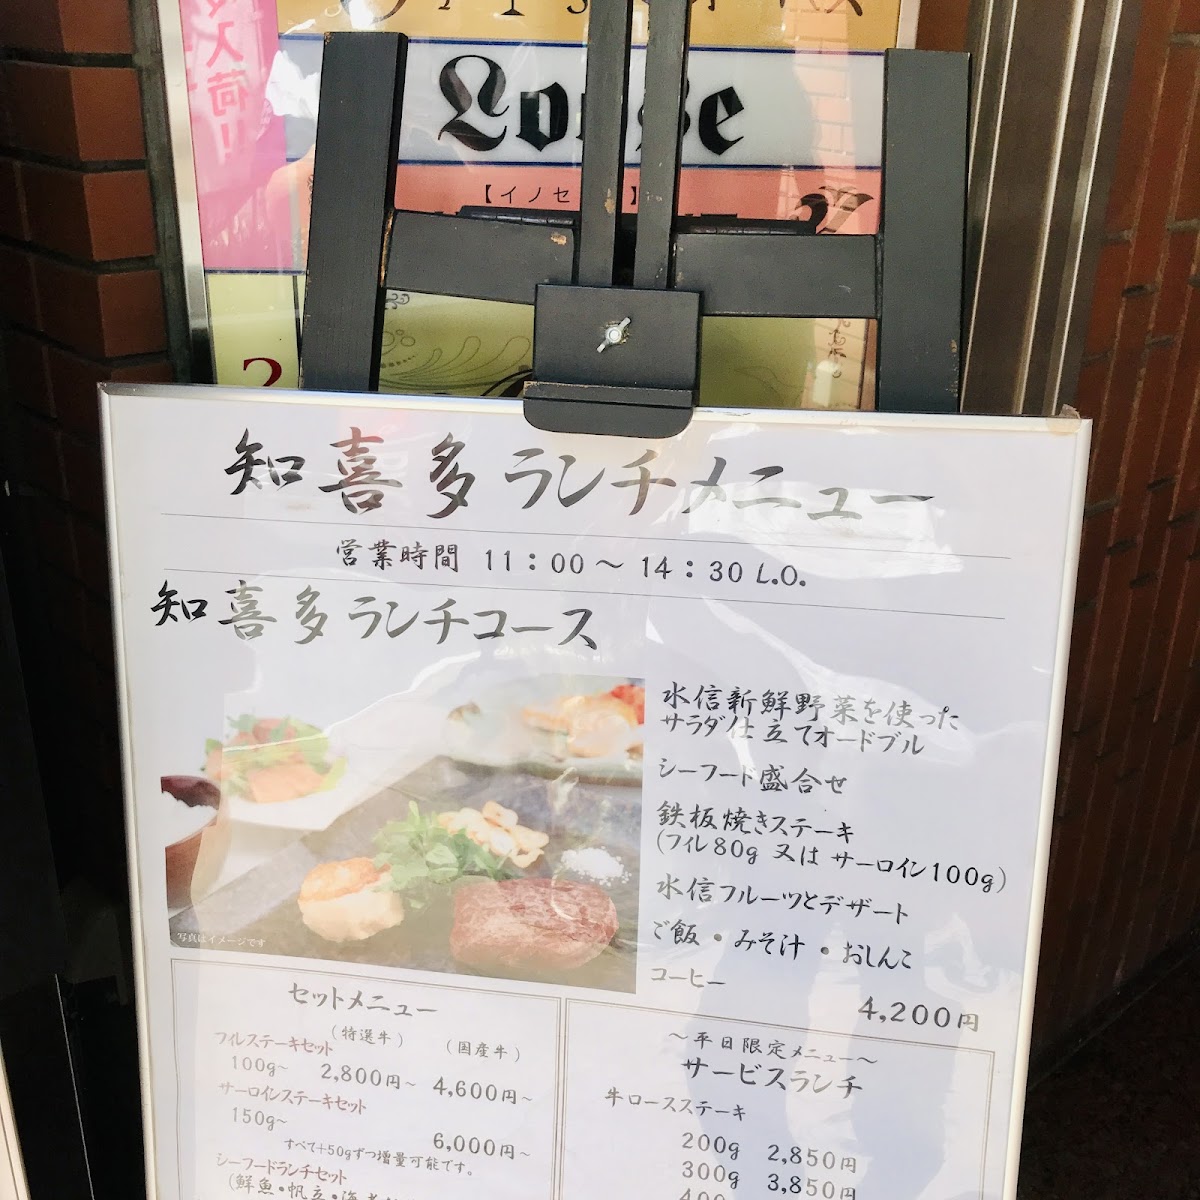 入荷!!
【イノセ
2
知喜多ランチメニュー
営業時間 11:00~14:30 L.O.
知喜多ランチコース
水信新鮮野菜を使った
サラダ仕立てオードブル
シーフード盛合せ
鉄板焼きステーキ
(フィレ80g 又は サーロイン100g)
水信フルーツとデザート
ご飯・みそ汁・おしんこ
コーヒー
4,200円
写真はイメージです
セットメニュー
(特選牛) (国産牛)
フィレステーキセット
100g~ 2,800円~ 4,600円~
サーロインステーキセット
150g~ 6,000円~
すべて+50gずつ増量可能です。
シーフードランチセット
(鮮魚・帆立・海老
~平日限定メニュー~
サービスランチ
牛ロースステーキ
200g 2,850円
300g 3,850円